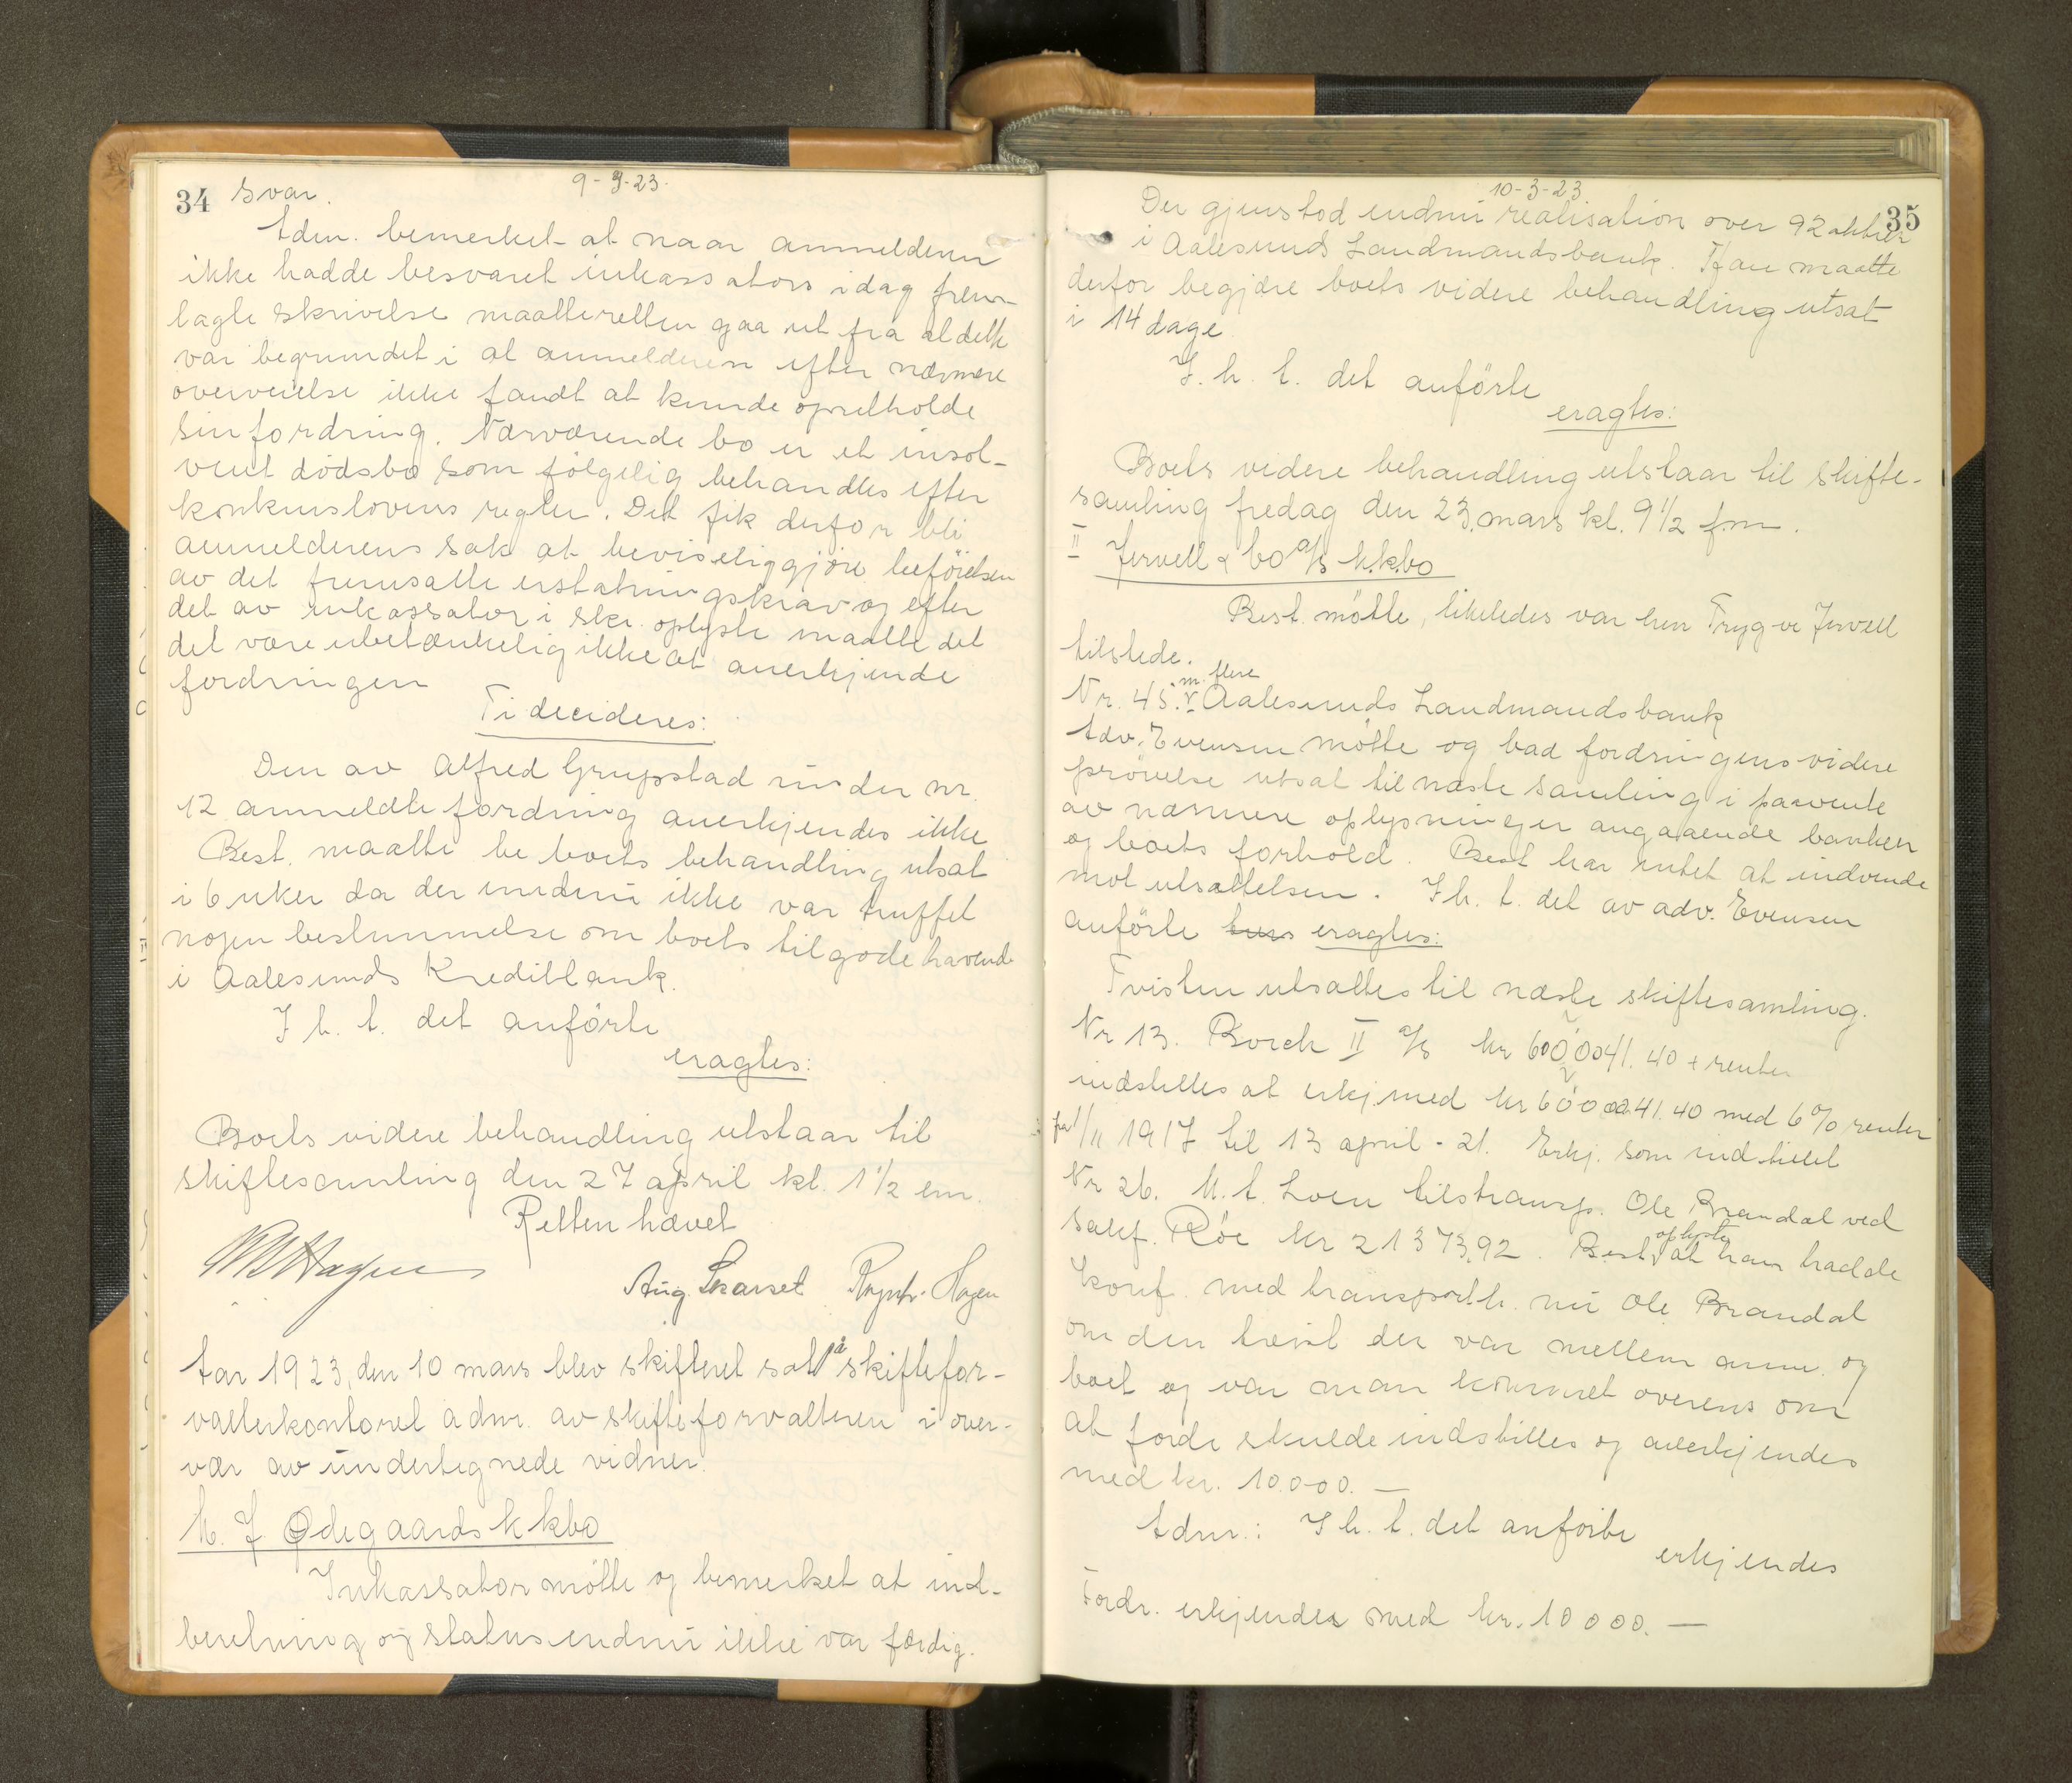 34 svar.
9-3-23.
Adm. bemerket at naar anmelderen
ikke hadde besvaret inkassators idag frem-
lagte skrivelse maatte retten gaa ut fra at dette
var begrundet i at anmelderen efter nærmere
overveielse ikke fandt at kunde opretholde
sin fordring. Nærværende bo er et insol-
vent dödsbo som fölgelig behandles efter
konkurslovens regler. Det fik derfor bli
anmelderens sak at beviseliggjöre beföielsen
av det fremsatte erstatningskrav og efter
det av inkassator i skr. oplyste maatte det
det være ubetænkelig ikke at anerkjende
fordringen
Ti decideres:
Den av Alfred Grupstad under nr.
12 anmeldte fordring anerkjendes ikke
Best. maatte be boets behandling utsat
i 6 uker da der endnu ikke var truffet
nogen bestemmelse om boets tilgodehavende
i Aalesunds Kreditbank.
I h. t. det anförte
eragtes:
Boets videre behandling utstaar til
skiftesamling den 27 april kl. 1 1/2 em.
Retten hævet
Aug. Skarset Hagen
Aar 1923, den 10 mars blev skifteret sat på skiftefor-
valterkontoret adm. av skifteforvalteren i over-
vær av undertegnede vidner.
M. J. Ødegaards k kbo
Inkassator mötte og bemerket at ind-
beretning og status endnu ikke var færdig.
10-3-23
35
Der gjenstod endnu realisation over 92 aktier
i Aalesunds Landmandsbank. Han maatte
derfor begjære boets videre behandling utsat
i 14 dage.
I. h. t. det anförte
eragtes:
Boets videre behandling utstaar til skifte-
samling fredag den 23. mars kl. 9 1/2 f.m.
II Jervell & Co a/s k.k.bo
Best. mötte, likeledes var herr Trygve Jervell
tilstede.
m. flere
Nr. 45. Aalesunds Landmandsbank
Adv. Evensen mötte og bad fordringens videre
prövelse utsat til næste samling i paavente
av nærmere oplysninger angaaende banken
og boets forhold. Best har intet at indvende
mot utsættelsen. I h. t. det av adv. Evensen
anförte eragtes:
Tvisten utsættes til næste skiftesamling.
Nr 13. Borch II a/s kr 600041.40 + renter
indstilles at erkj. med kr 600041.40 med 6% renter
fra 1/11 1917 til 13 april - 21. Erkj. som indstillet
Nr 26. M. t. Loen tilstransp. Ole Brandal ved
sakf. Röe kr 21373,92. Best. oplyste at han hadde
konf. med transporth. nu Ole Brandal
om den tvist der var mellem anm. og
boet og var man kommet overens om
at fordr skulde indstilles og anerkjendes
med kr. 10.000. —
Adm.: I h. t. det anförte
erkjendes
Fordr. erkjendes med kr. 10000. —